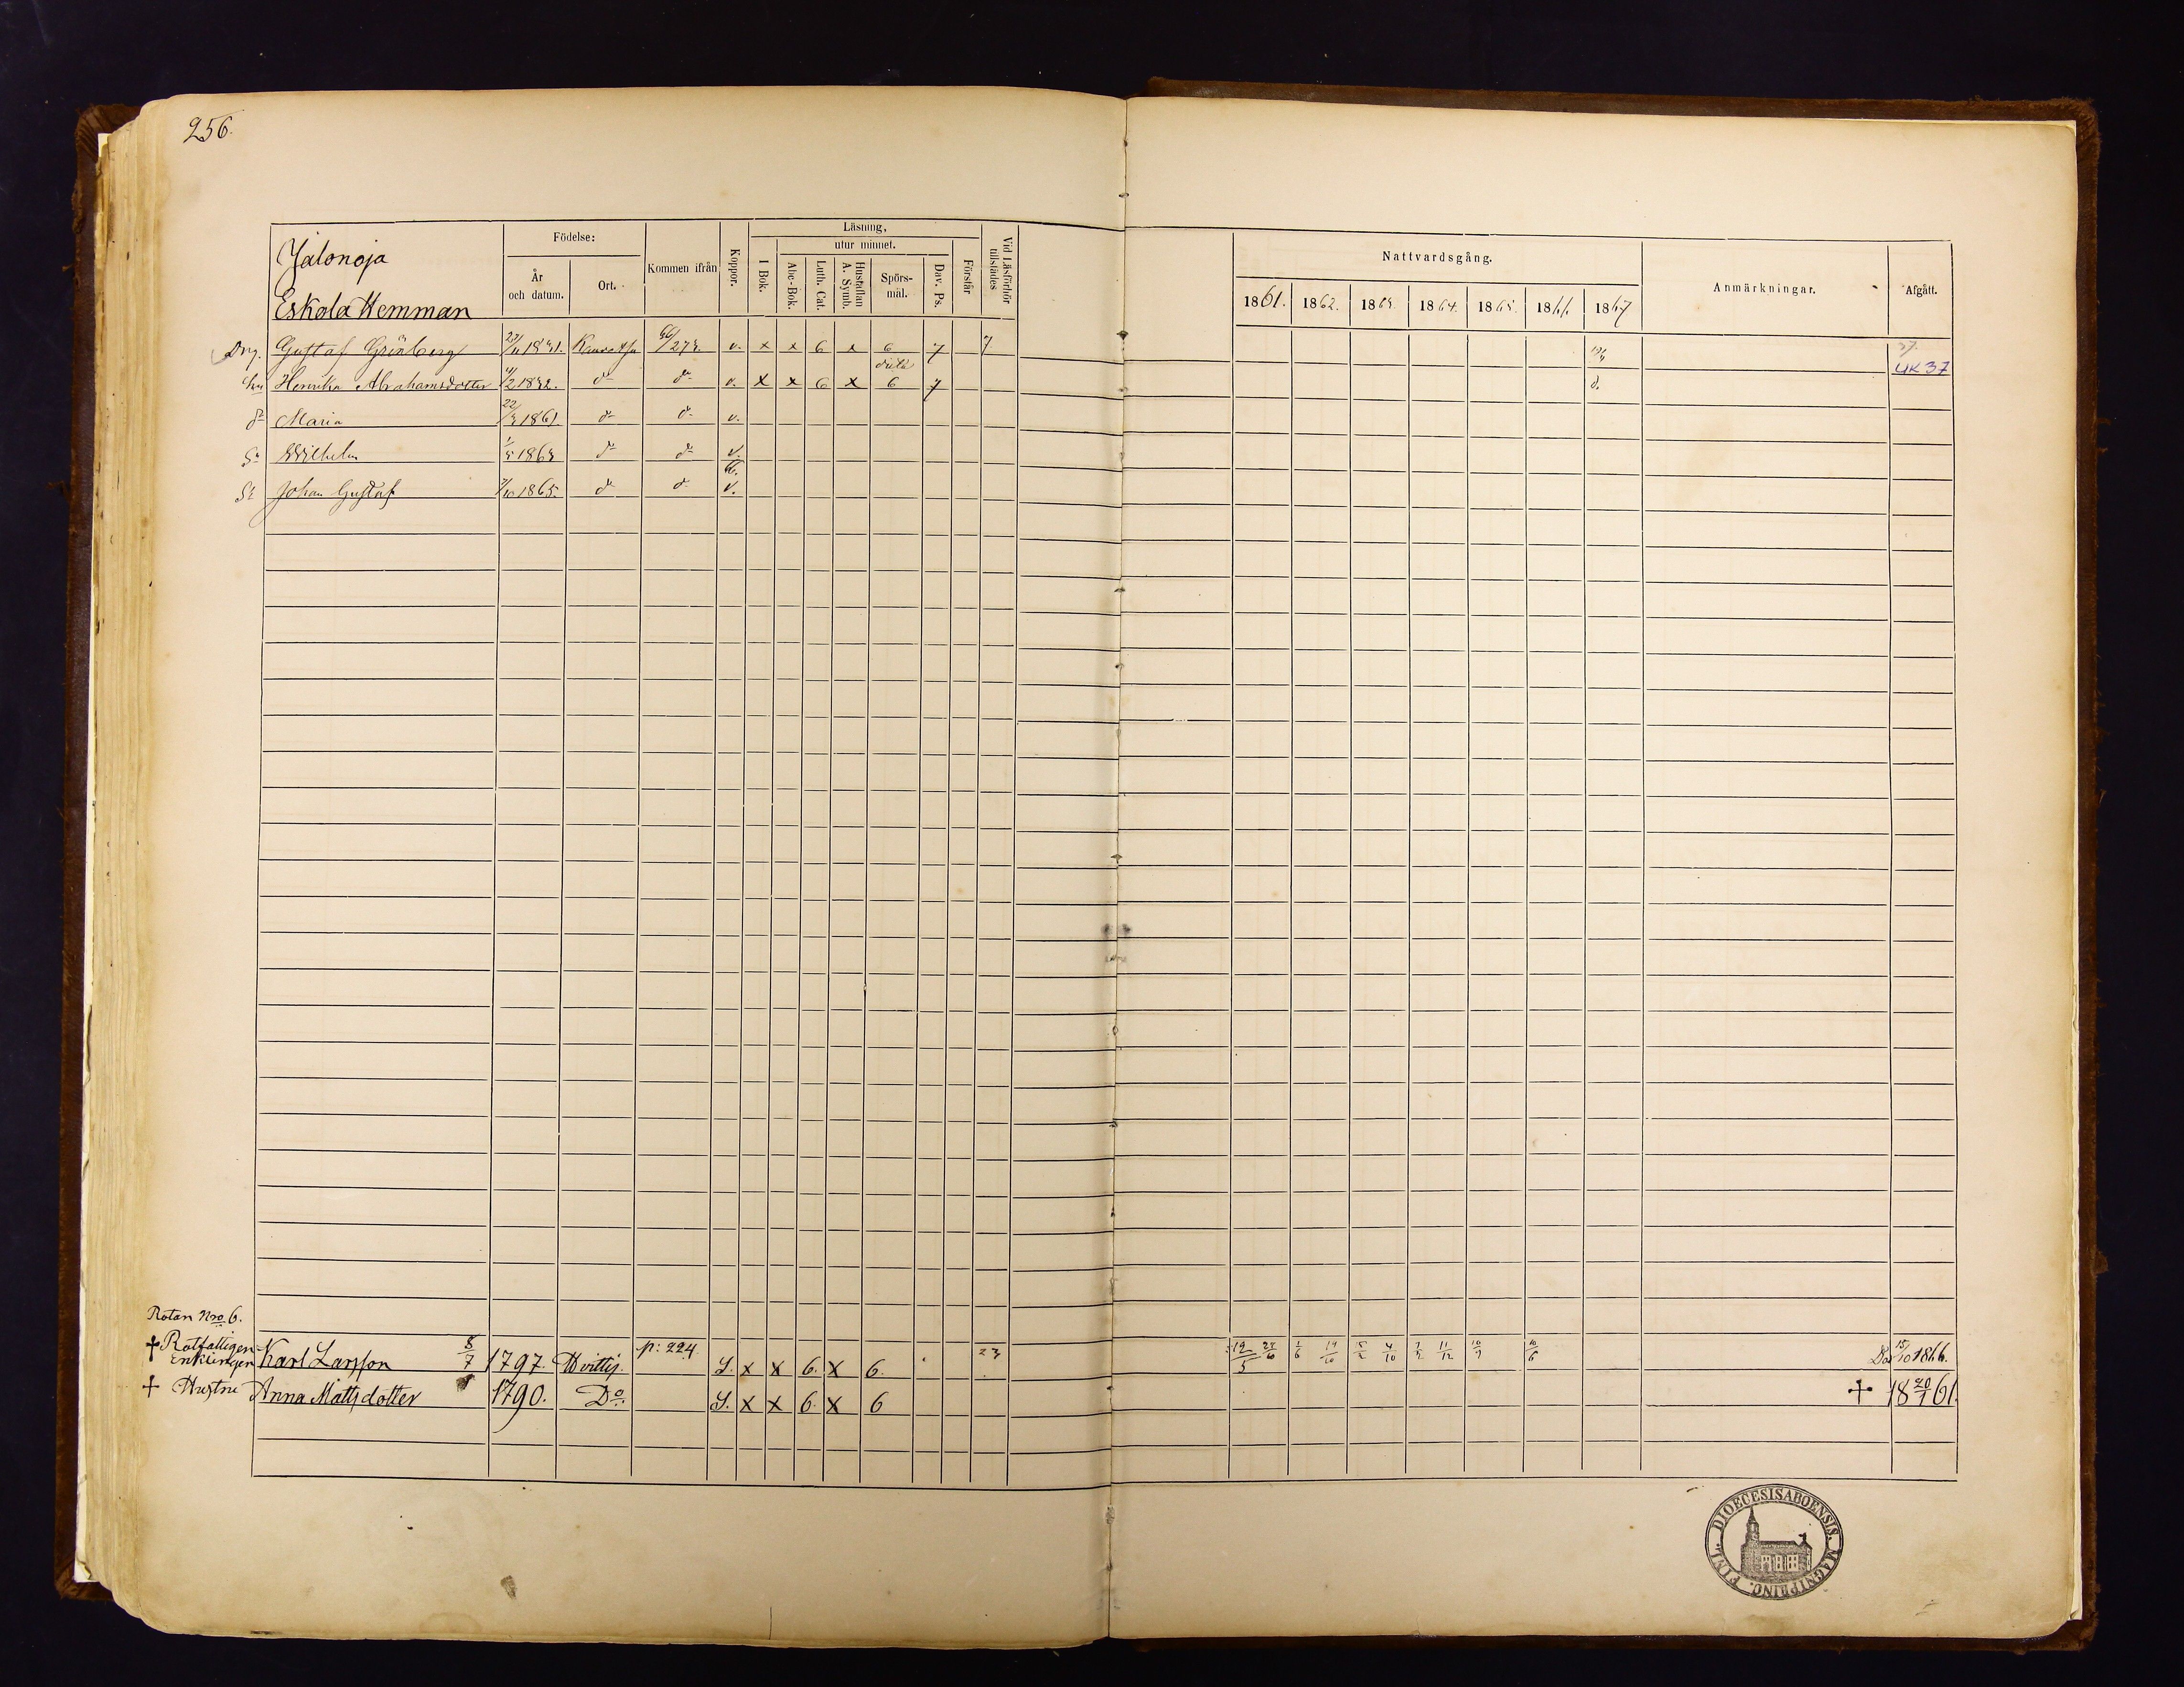 256.
Jalonoja
Eskola Hemman
Födelse:
År och datum.
Ort.
Kommen ifrån
Koppor.
Läsning,
I Bok.
utur minnet.
Abc-Bok.
Luth. Cat.
Hustaflan A. Symb.
Spörsmål.
Dav. Ps.
Förstår
Vid Läsförhör tillstädes
Nattvardsgång.
1861. 1862. 1863. 1864. 1865. 1866. 1867
Anmärkningar.
Afgått.
Drg. Gustaf Grönberg 1831. 66/273. v. x x 6 x 6 7 7
Henrika Abrahamsdotter 1832. d:o d:o v. x x 6 x 6 7 d. UK 37
Maria 22/3 1861 d:o d:o v.
Wilhelm 1863 d:o d:o v.
Johan Gustaf 7/10 1865. d:o d:o v.
Rotan Nro 6.
† Rotfattigen Enklingen Karl Larsson 8/7 1797. Hvittis. p: 224 S. x x 6. x 6. 23 19/5 24/6 1/6 19/10 4/10 11/12 10/6 15/10 1866.
† Hustru Anna Mattsdotter 1790. Do. S. x x 6. x 6 † 18 20/1 61.
DIOECESIS ABOENSIS. MAGNI PRINC. FINL.